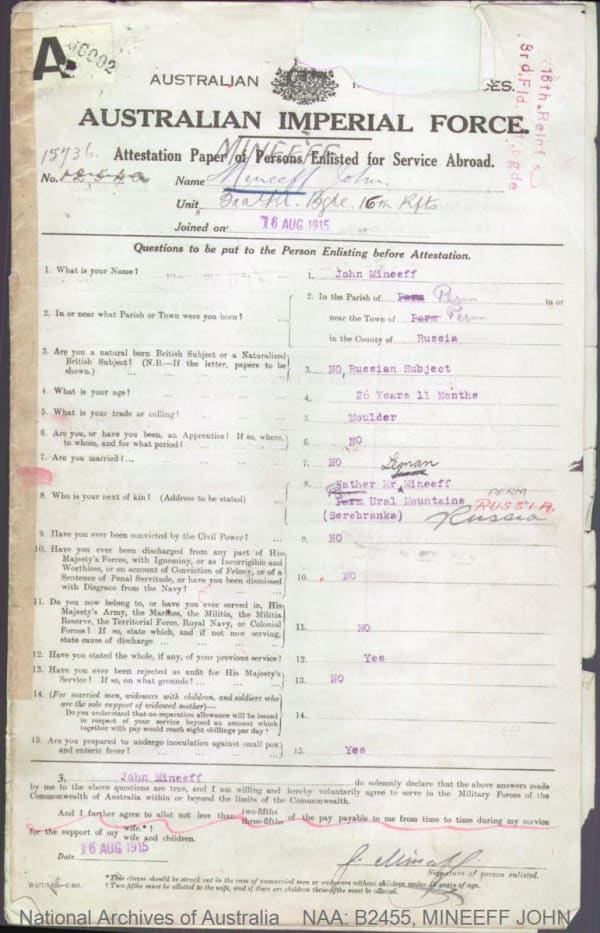 A.
AUSTRALIAN
AUSTRALIAN IMPERIAL FORCE.
16th. Reinf's
3rd. Fld.
MINEEFF
15736. Attestation Paper of Persons Enlisted for Service Abroad.
No. Name Mineeff John.
Unit Bgde. 16th Rfts
Joined on 16 AUG 1915
Questions to be put to the Person Enlisting before Attestation.
1. What is your Name? 1. John Mineeff
2. In or near what Parish or Town were you born? 2. In the Parish of Parm Perm in or
near the Town of Parm Perm
in the County of Russia
3. Are you a natural born British Subject or a Naturalized
British Subject? (N.B.—If the latter, papers to be
shown.) 3. NO, Russian Subject
4. What is your age? 4. 26 Years 11 Months
5. What is your trade or calling? 5. Moulder
6. Are you, or have you been, an Apprentice? If so, where,
to whom, and for what period? 6. NO
7. Are you married? 7. NO
8. Who is your next of kin? (Address to be stated) 8. Father Mr Mineeff
Parm Ural Mountains PERM RUSSIA.
(Serebranka) Russia
9. Have you ever been convicted by the Civil Power? 9. NO
10. Have you ever been discharged from any part of His
Majesty's Forces, with Ignominy, or as Incorrigible and
Worthless, or on account of Conviction of Felony, or of a
Sentence of Penal Servitude, or have you been dismissed
with Disgrace from the Navy? 10. NO
11. Do you now belong to, or have you ever served in, His
Majesty's Army, the Marines, the Militia, the Militia
Reserve, the Territorial Force, Royal Navy, or Colonial
Forces? If so, state which, and if not now serving,
state cause of discharge 11. NO
12. Have you stated the whole, if any, of your previous service? 12. Yes
13. Have you ever been rejected as unfit for His Majesty's
Service? If so, on what grounds? 13. NO
14. (For married men, widowers with children, and soldiers who
are the sole support of widowed mother)—
Do you understand that no separation allowance will be issued
in respect of your service beyond an amount which
together with pay would reach eight shillings per day? 14.
15. Are you prepared to undergo inoculation against small pox
and enteric fever? 15. Yes
I, John Mineeff do solemnly declare that the above answers made
by me to the above questions are true, and I am willing and hereby voluntarily agree to serve in the Military Forces of the
Commonwealth of Australia within or beyond the limits of the Commonwealth.
And I further agree to allot not less than two-fifths three-fifths of the pay payable to me from time to time during my service
for the support of my wife.*† wife and children.
Date 16 AUG 1915
J. Mineeff.
Signature of person enlisted.
*This clause should be struck out in the case of unmarried men or widowers without children under 18 years of age.
†Two-fifths must be allotted to the wife, and if there are children three-fifths must be allotted.
National Archives of Australia NAA: B2455, MINEEFF JOHN